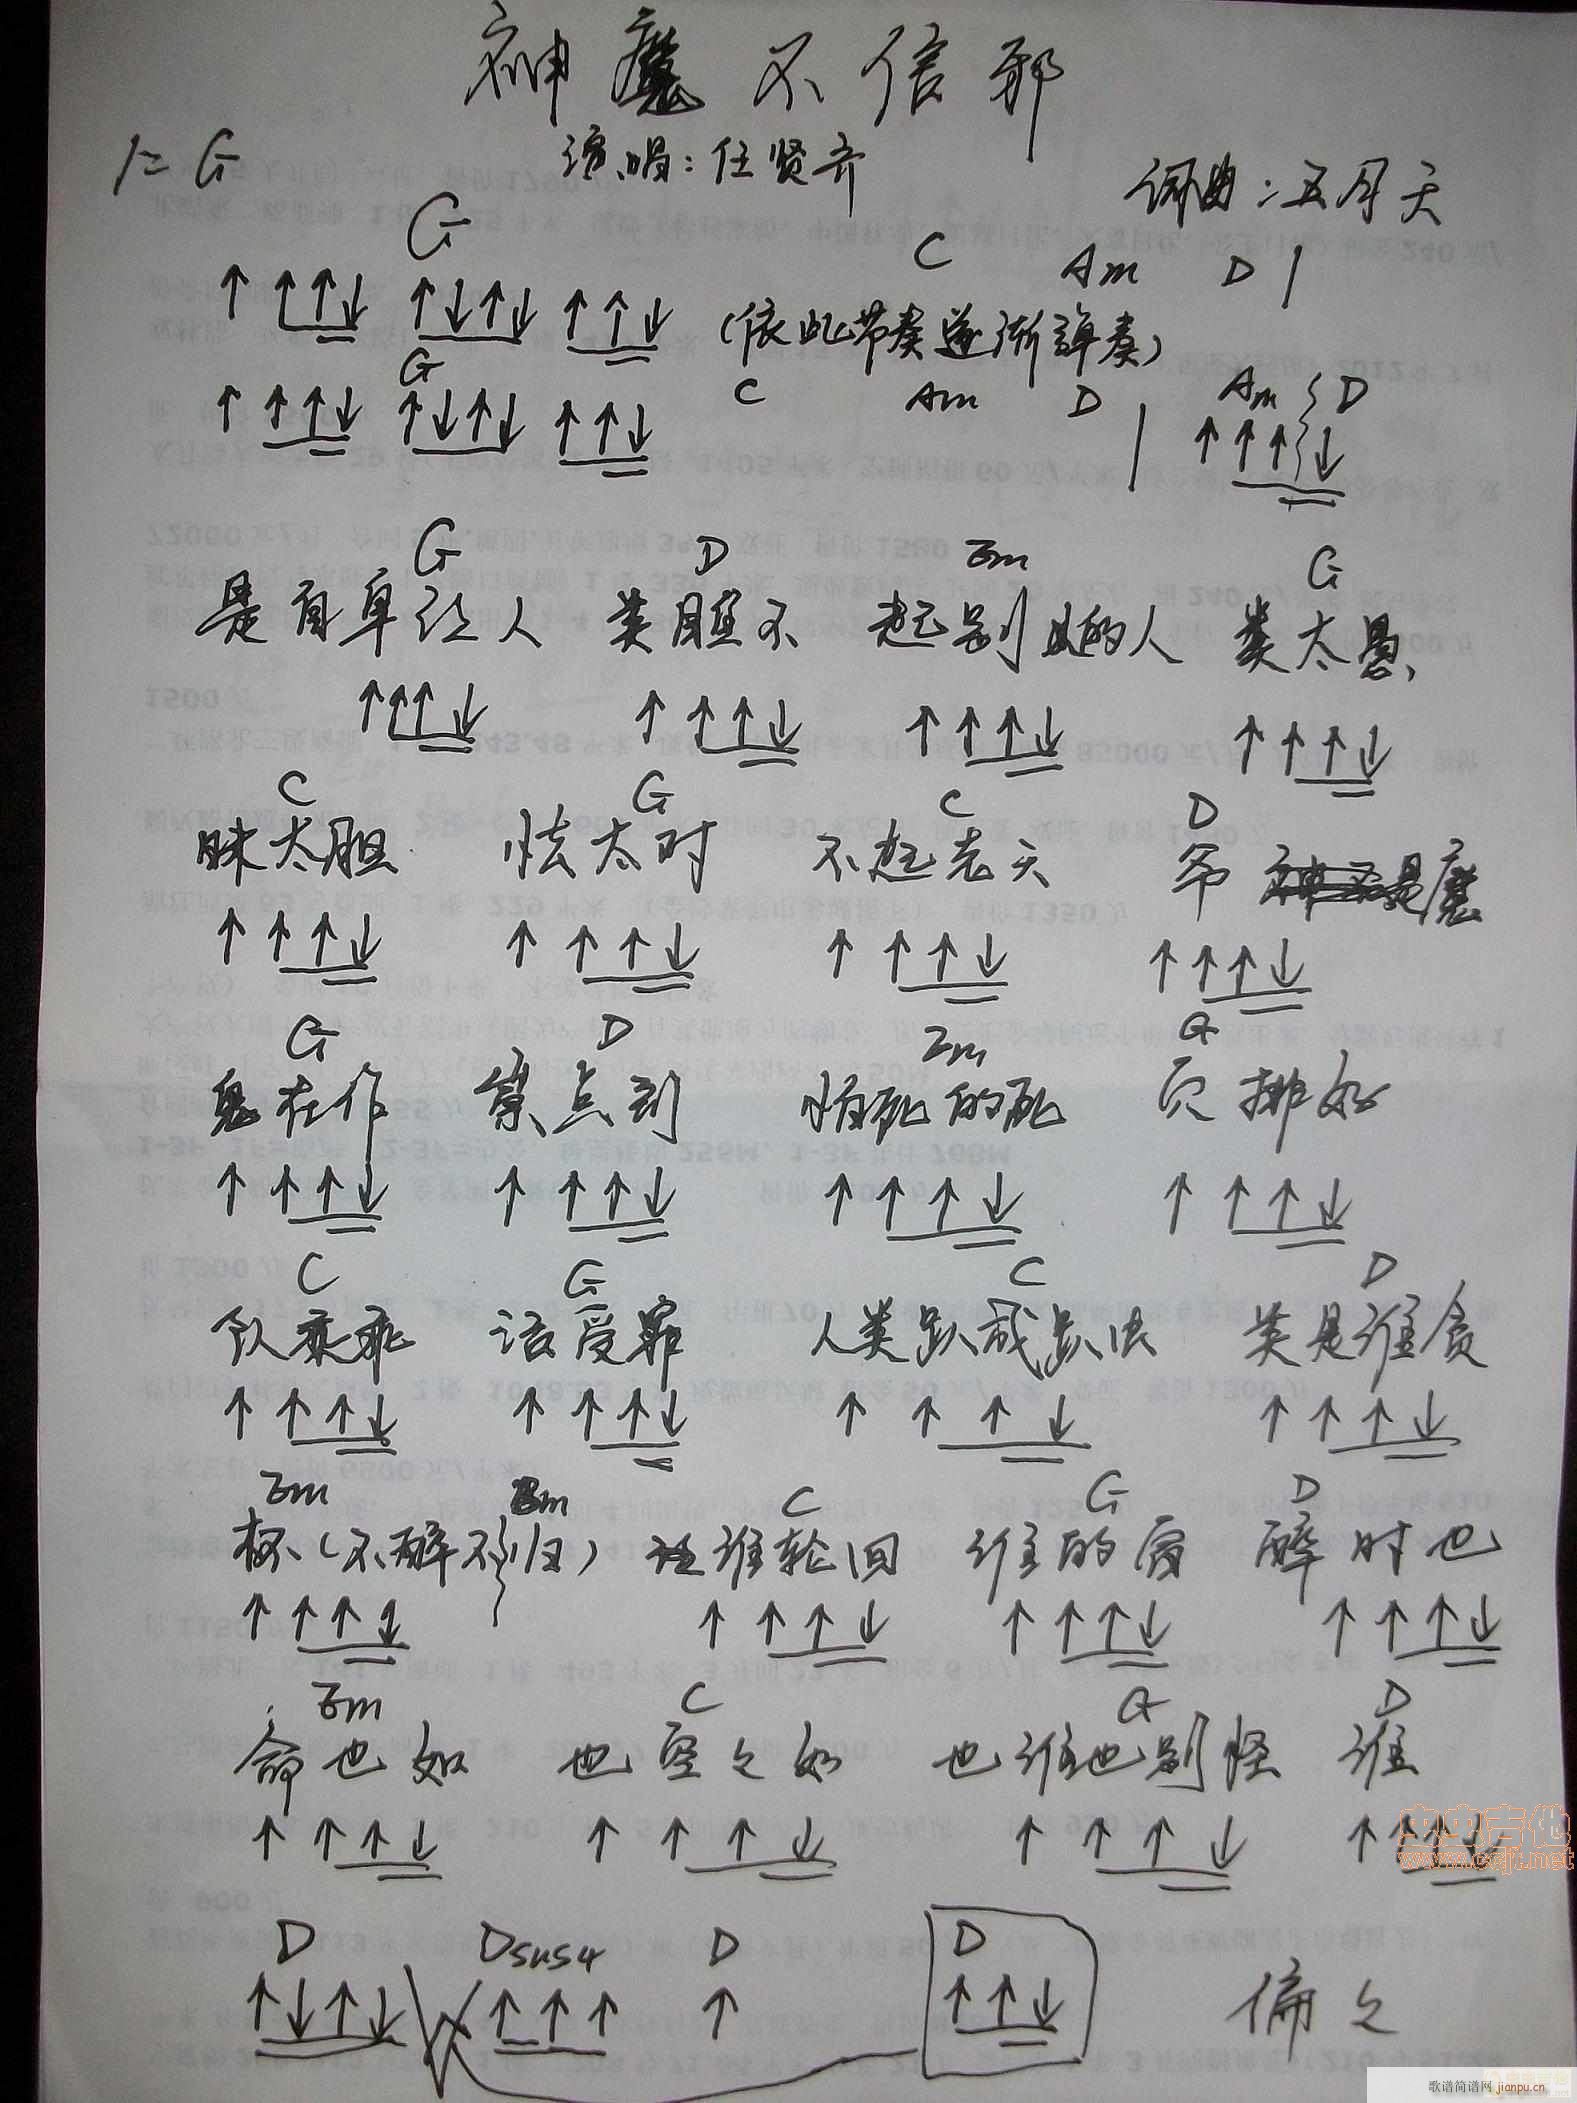 神魔不信邪
1=G 演唱:任贤齐 词曲:五月天
G C Am D
(依此节奏逐渐弹奏)
G C Am D Am D
G D Em G
是有单让人 类胆不 起别 的人 类太愚
C G C D
昧太胆 怯太对 不起老天 爷 是魔
G D Em G
鬼在作 祟点到 怕死的死 穴排好
C G C D
队乖乖 活受罪 人类 类是谁贪
Em Bm C G D
杯(不醉不归) 谁轮回 谁的宿 醉时也
Em C G D
命也如 也空之如 也谁也别怪 谁
D Dsus4 D D 偏之
虫虫吉他
www.ccjt.net
歌谱简谱网 jianpu.cn